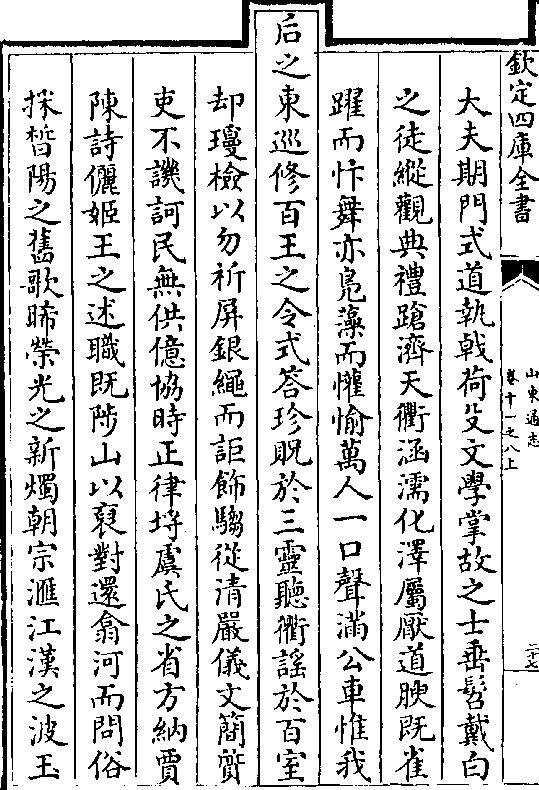 欽定四庫全書
山東通志
卷十一之八上
二十七
大夫期門式道執㦸荷殳文學掌故之士垂髫戴白
之徒縱觀典禮蹌濟天衢涵濡化澤屬厭道腴既雀
躍而忭舞亦鳧藻而懽愉萬人一口聲滿公車惟我
后之東巡修百王之令式答珍貺於三靈聽衢謡於百室
却瓊檢以勿祈屏銀繩而詎飾騶從清嚴儀文簡質
吏不譏訶民無供億協時正律埒虞氏之省方納賈
陳詩儷姬王之述職既陟山以裒對還翕河而問俗
採晳陽之舊歌晞榮光之新燭朝宗滙江漢之波玉